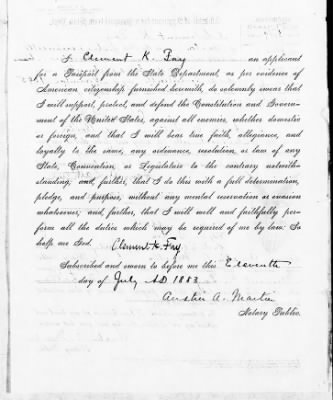 I, Clement K. Fay an applicant
for a Passport from the State Department, as per evidence of
American citizenship furnished herewith, do solemnly swear that
I will support, protect, and defend the Constitution and Govern-
ment of the United States, against all enemies, whether domestic
or foreign, and that I will bear true faith, allegiance, and
loyalty to the same, any ordinance, resolution or law of any
State, Convention or Legislature to the contrary notwith-
standing, and, further, that I do this with a full determination,
pledge, and purpose, without any mental reservation or evasion
whatsoever; and, further, that I will well and faithfully per-
form all the duties which may be required of me by law: So
help me God.
Clement K. Fay
Subscribed and sworn to before me this Eleventh
day of July A.D 1883
Austin A. Martin
Notary Public.